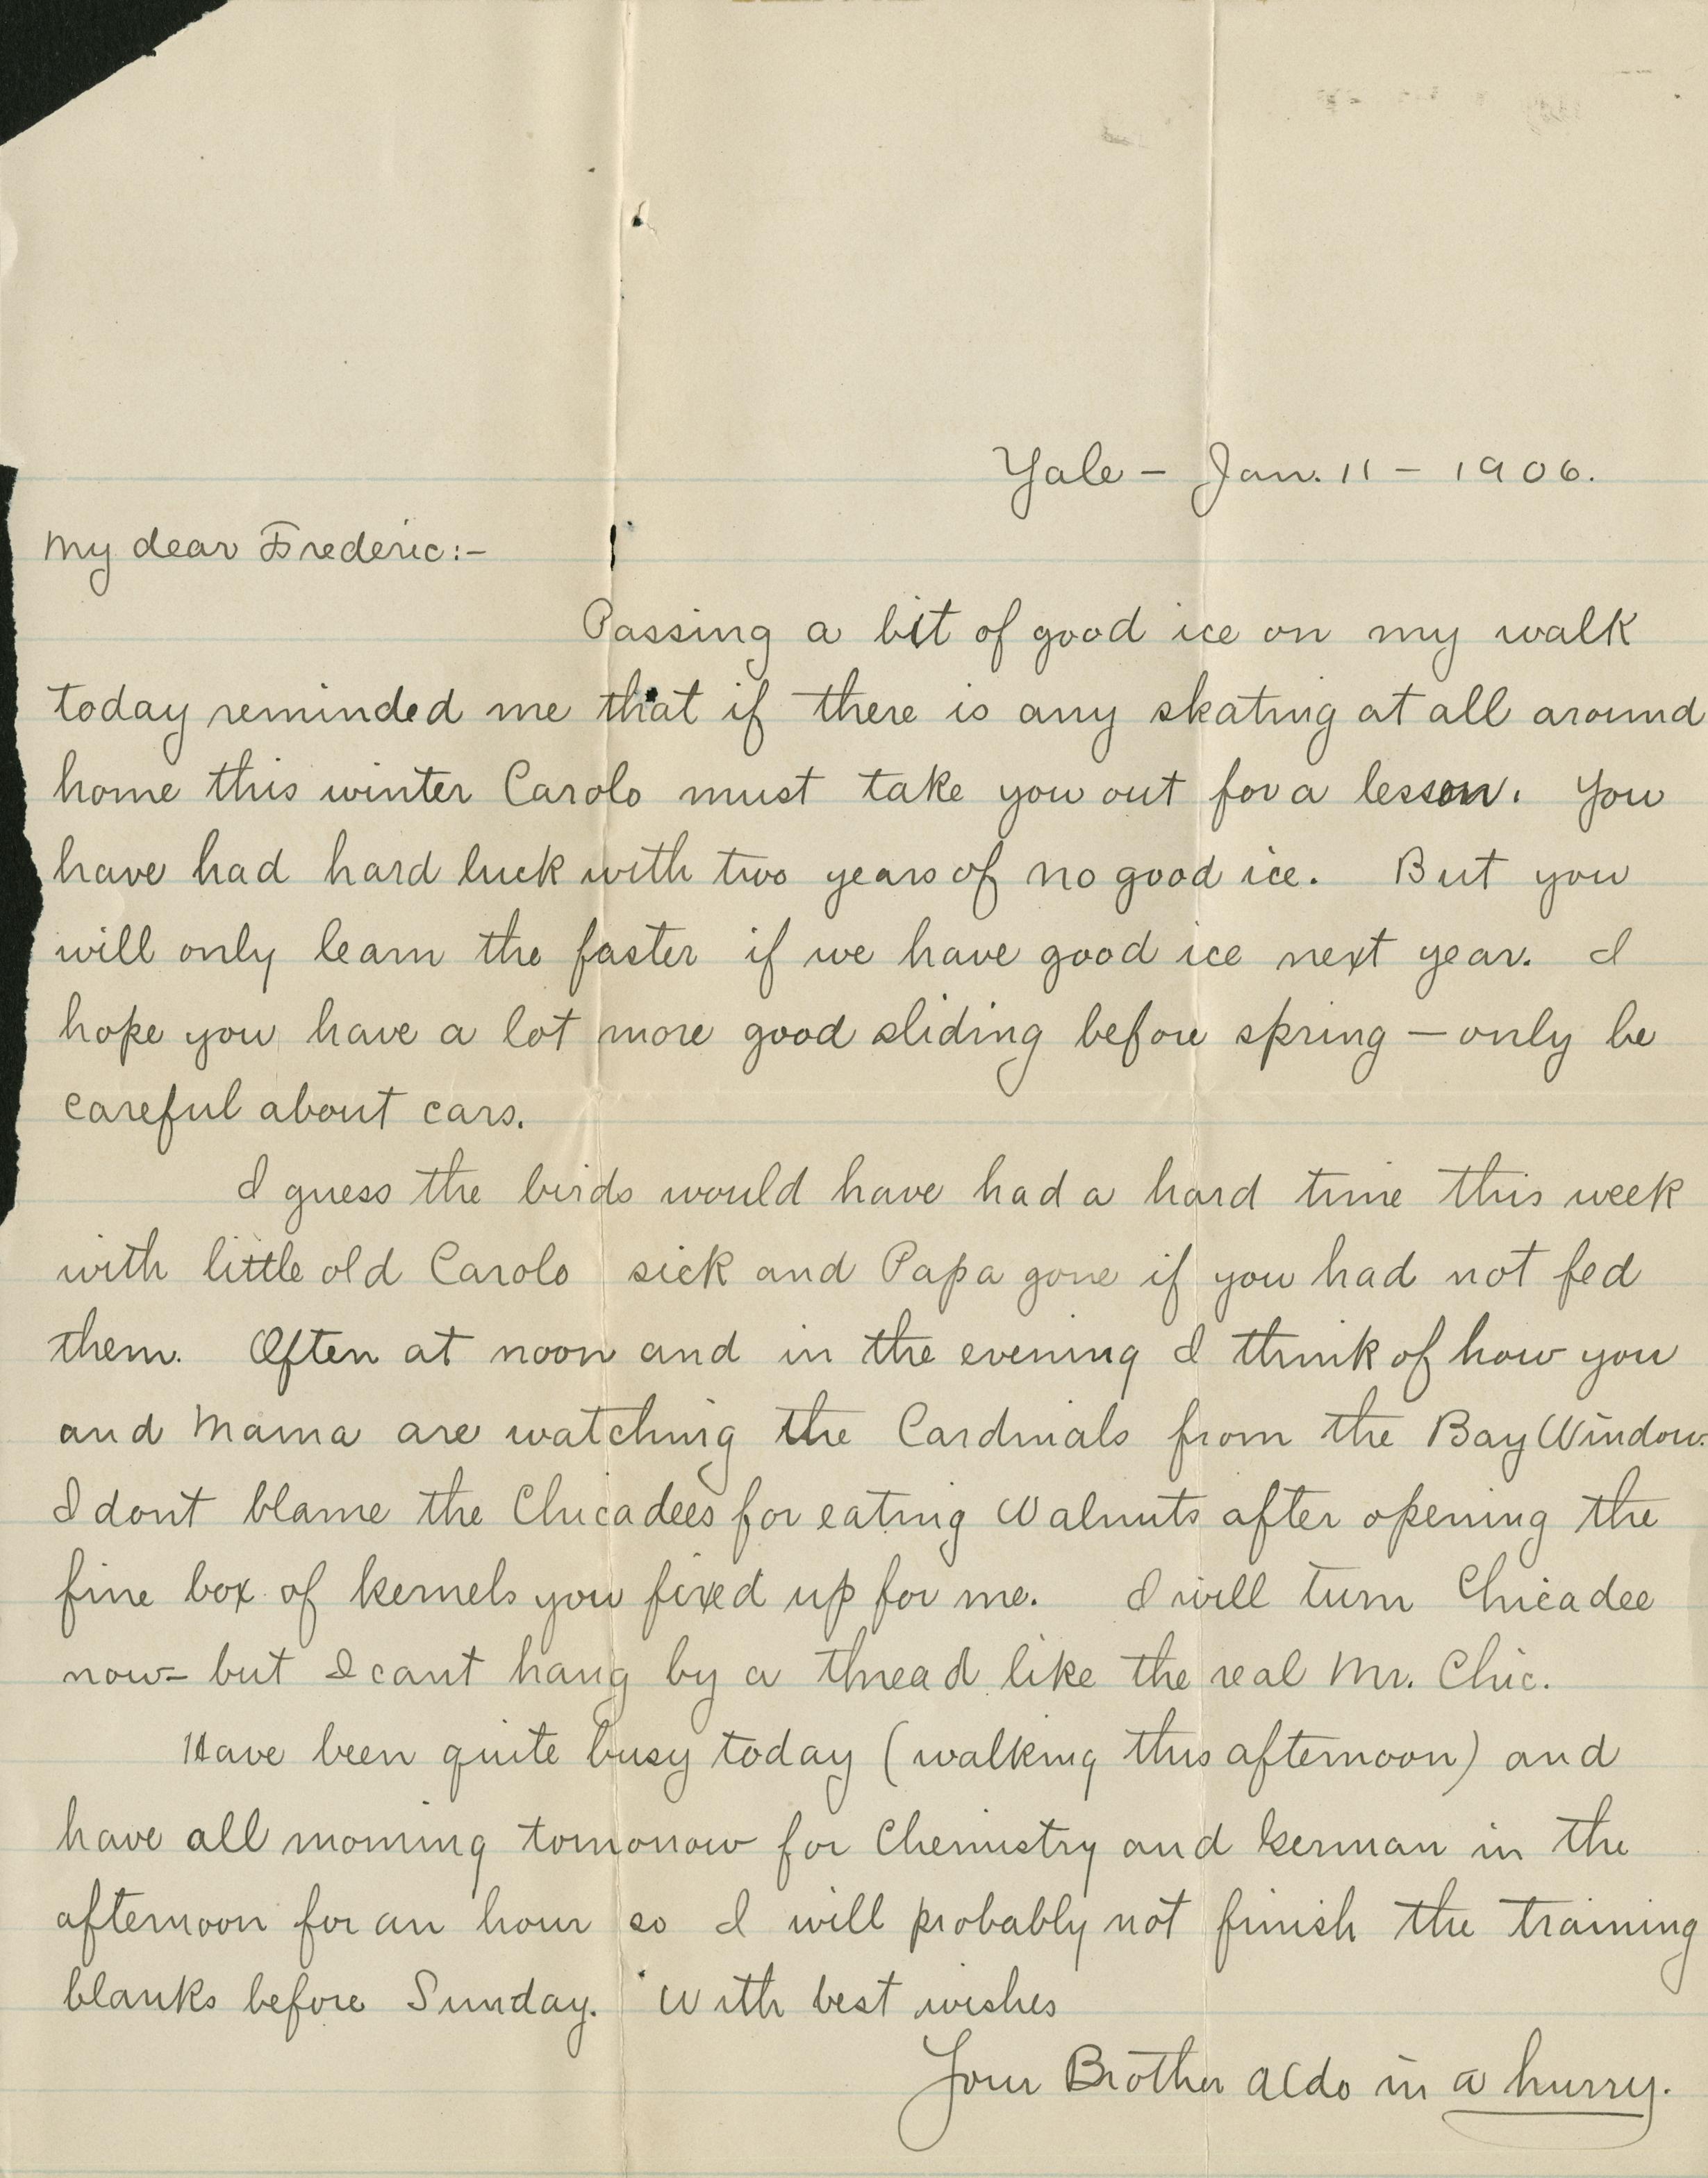 Yale – Jan. 11 – 1906.
My dear Frederic:–
Passing a bit of good ice on my walk
today reminded me that if there is any skating at all around
home this winter Carolo must take you out for a lesson. You
have had hard luck with two years of no good ice. But you
will only learn the faster if we have good ice next year. I
hope you have a lot more good sliding before spring – only be
careful about cars.
I guess the birds would have had a hard time this week
with little old Carolo sick and Papa gone if you had not fed
them. Often at noon and in the evening I think of how you
and Mama are watching the Cardinals from the Bay Window.
I dont blame the Chicadees for eating Walnuts after opening the
fine box of kernels you fixed up for me. I will turn Chicadee
now – but I cant hang by a thread like the real Mr. Chic.
Have been quite busy today (walking this afternoon) and
have all morning tomorrow for Chemistry and German in the
afternoon for an hour so I will probably not finish the training
blanks before Sunday. With best wishes
Your Brother Aldo in a hurry.